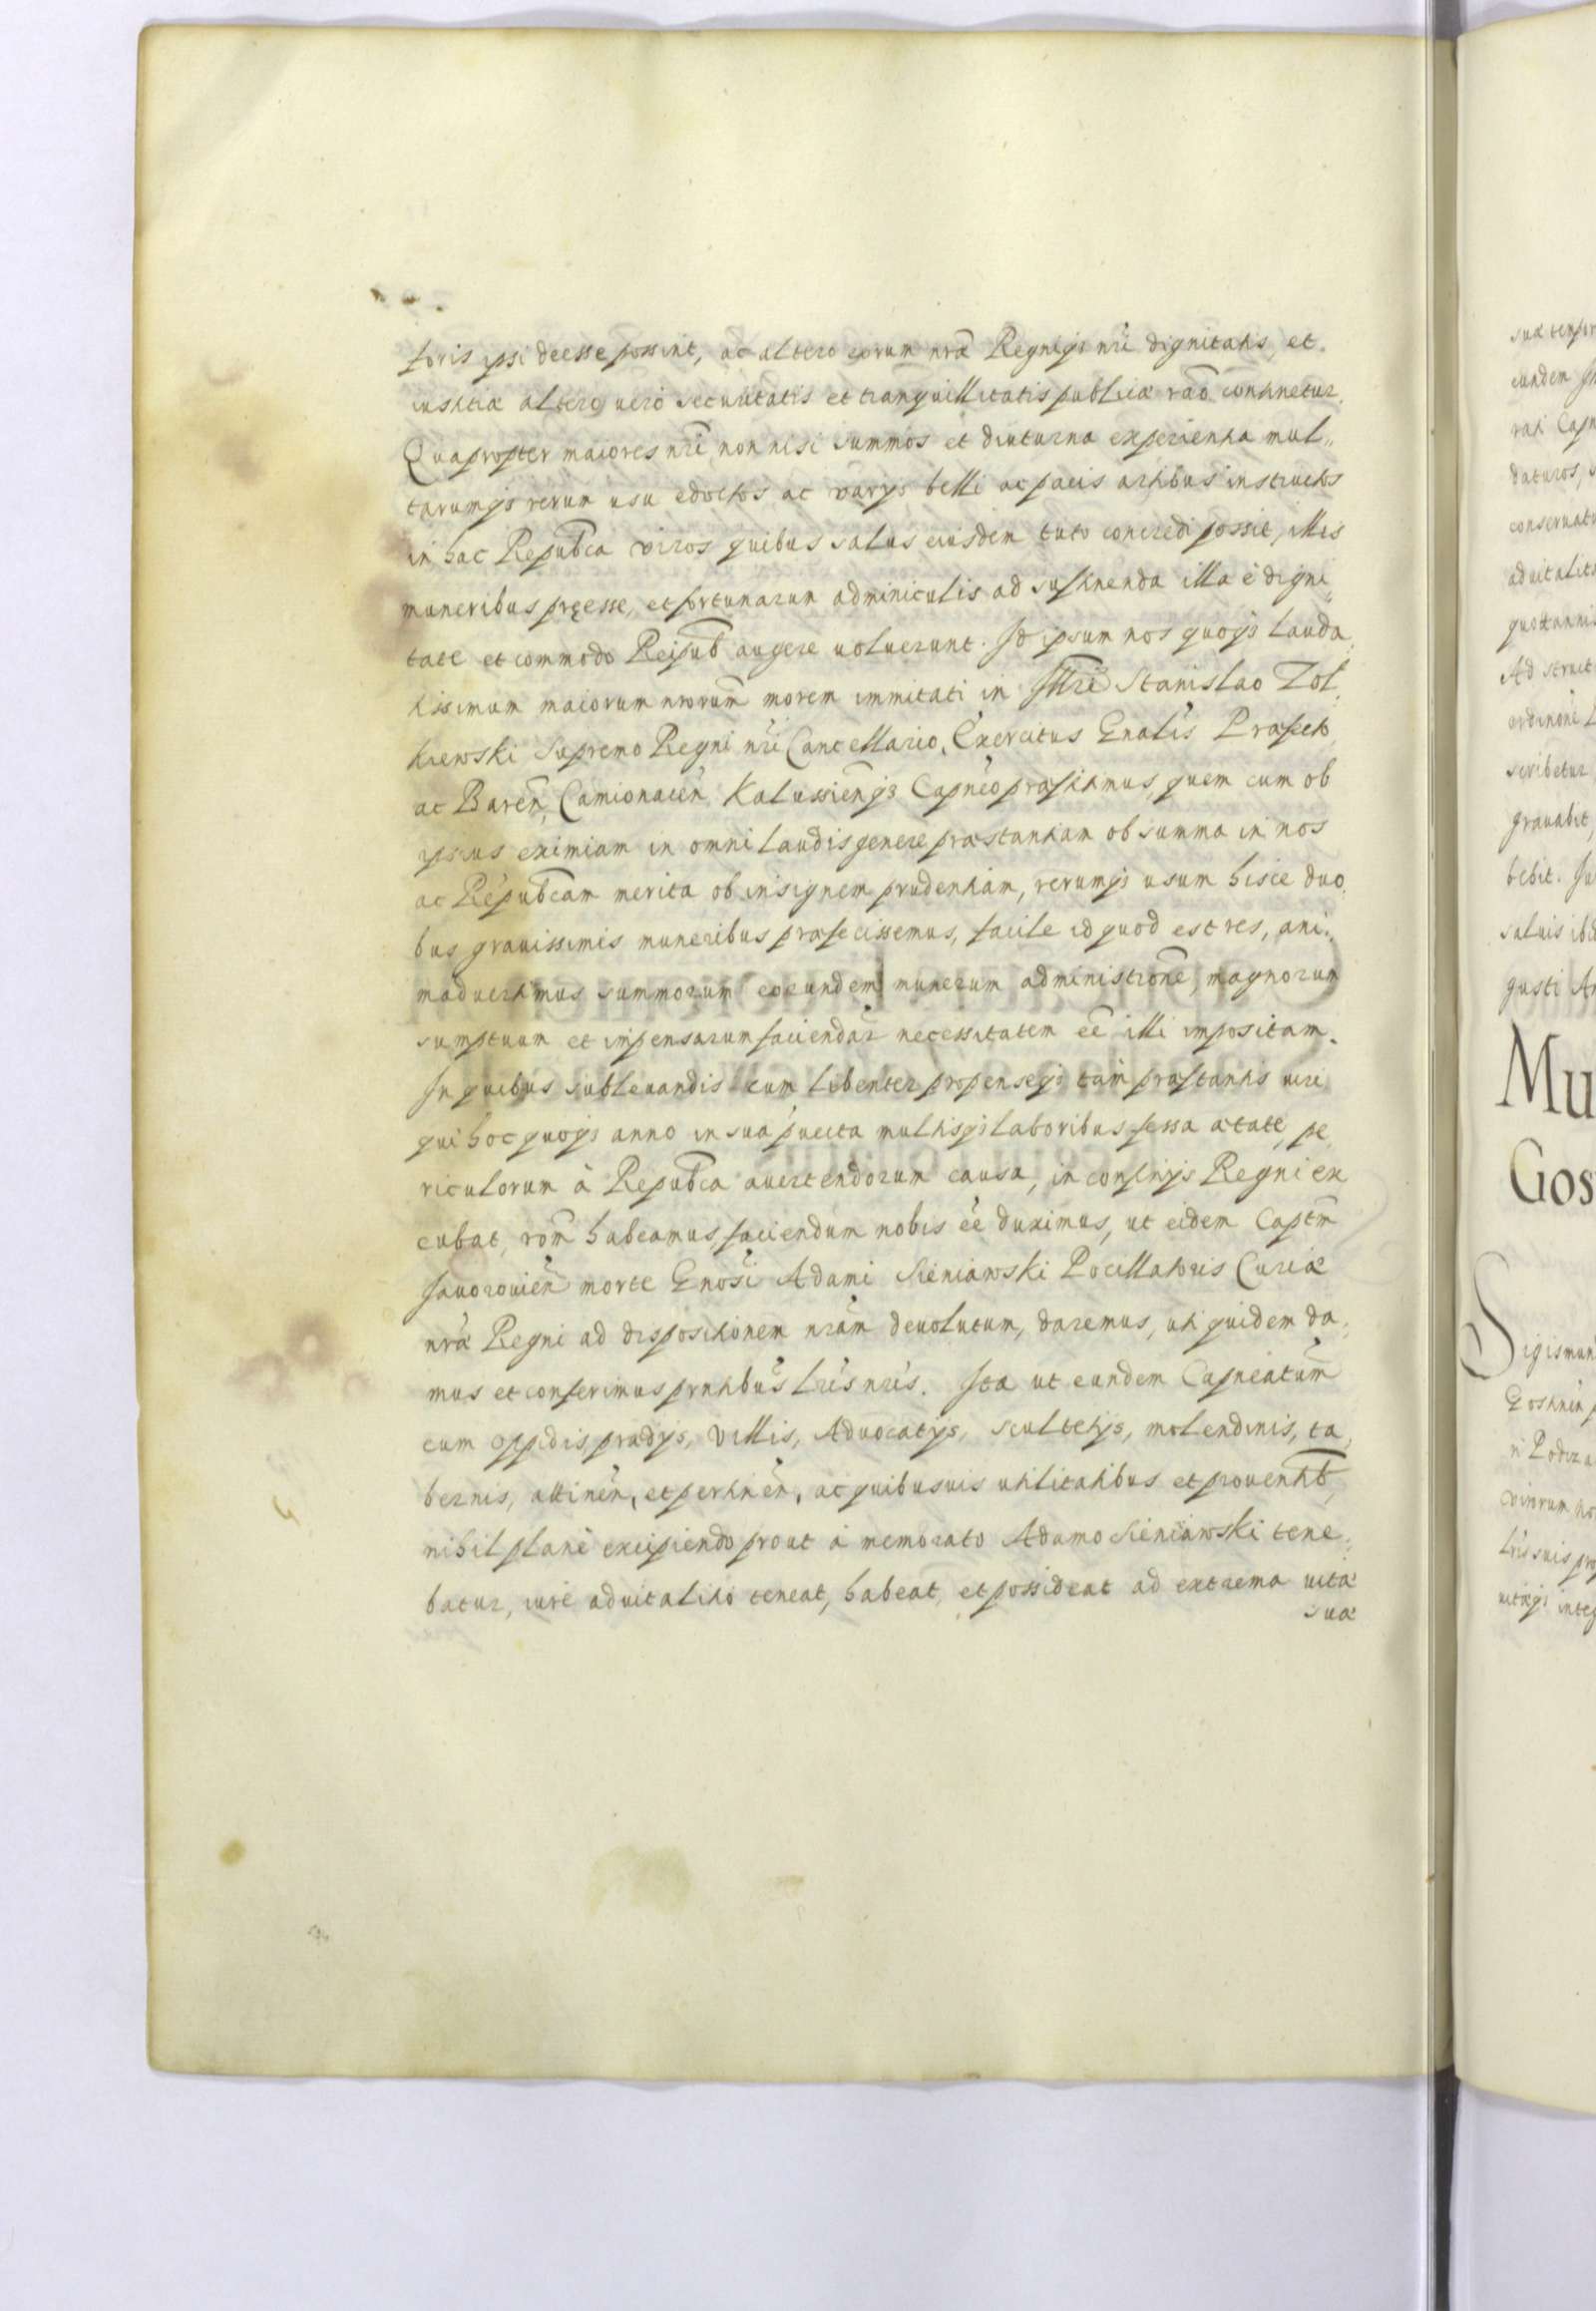 foris ipsi deesse possint, ac altero eorum nrae Regniq; nri dignitatis, et
iustitiae altero vero securitatis et tranquillitatis publicae rao continetur.
Quapropter maiores nri non nisi summos et diuturna experientia mul„
tarumq; rerum usu edoctos ac varys belli ac pacis artibus instructos
in hac Repubca viros quibus salus eiusdem tuto concredi possit, illis
muneribus pręesse, et fortunarum adminiculis ad sustinenda illa è digni„
tate et commodo Reipub augere voluerunt. Id ipsum nos quoq; lauda„
tissimum maiorum nrorum morem immitati in Illri Stanislao Zol„
kiewski Supremo Regni nri Cancellario, Exercitus Gnalis Praefecto
ac Baren, Camionacen Kalussienq; Capneo praestitimus, quem cum ob
ipsius eximiam in omni laudis genere praestantiam ob summa in nos
ac Repubcam merita ob insignem prudentiam, rerumq; usum hisce duo„
bus gravissimis muneribus praefecissemus, facile id quod est res, ani„
madvertimus summorum eorundem munerum administrone, magnorum
sumptuum et impensarum faciendar necessitatem ee illi impositam.
In quibus sublevandis cum libenter propenseq; tam praestantis viri
qui hoc quoq; anno in sua ... multisq; laboribus fessa aetate, pe„
riculorum à Repubca avertendorum causa, in confinys Regni ex
cubat, rom habeamus, faciendum nobis ee duximus, ut eidem Captm
Javorovien morte Gnosi Adami Sieniawski Pocillatoris Curiae
nrae Regni ad dispositionem nram devolutum, daremus, uti quidem da„
mus et conferimus prntibus lris nris. Ita ut eundem Capneatum
cum oppidis, praedys, villis, Advocatys, scultetys, molendinis, ta„
bernis, attinen, et pertinen, ac quibusvis utilitatibus et proventib,
nihil planè excipiendo prout à memorato Adamo Sieniawski tene„
batur, iure advitalitio teneat, habeat, et possideat ad extrema vitae
suae
Mu
Gos
Sigismun